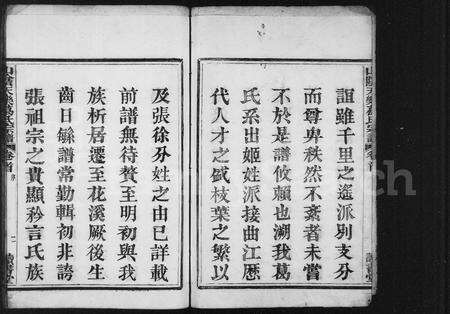 誼雖千里之遙派別支分
而尊卑秩然不紊者未嘗
不於是譜攸賴也溯我葛
氏系出姬姓派接曲江歷
代人才之盛枝葉之繁以
及張徐分姓之由已詳載
前譜無待贅至明初與我
族析居遷至花溪厥後生
齒日緐譜常勤輯初非誇
張祖宗之貴顯矜言氏族
山陰天樂葛氏宗譜
卷首